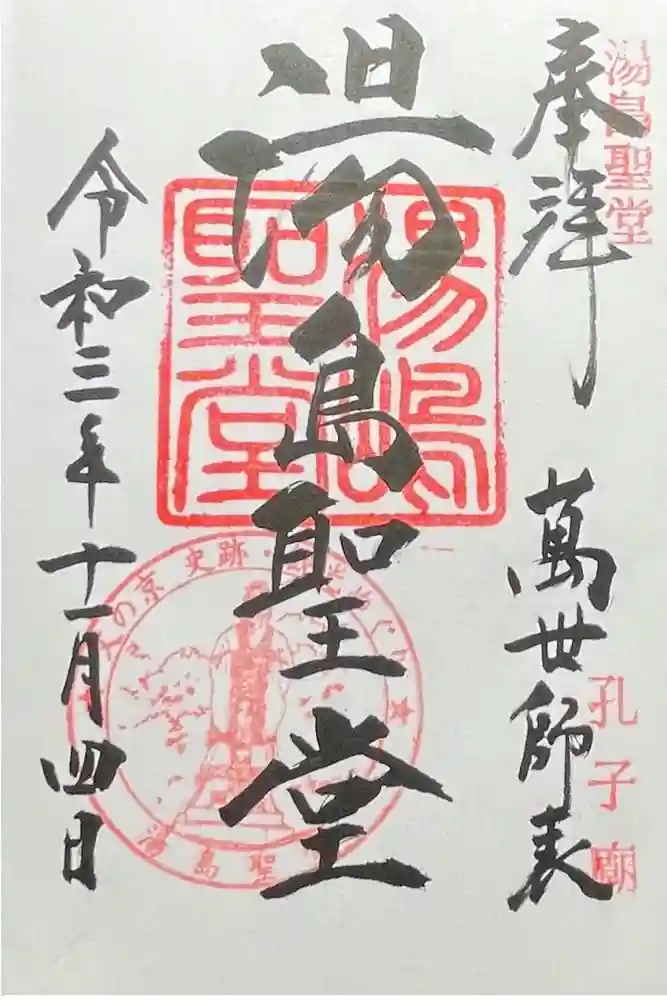 湯島聖堂
奉拝
萬世師表
孔子廟
湯島聖堂
湯島聖堂
令和三年十一月四日
文の京 史跡
湯島聖